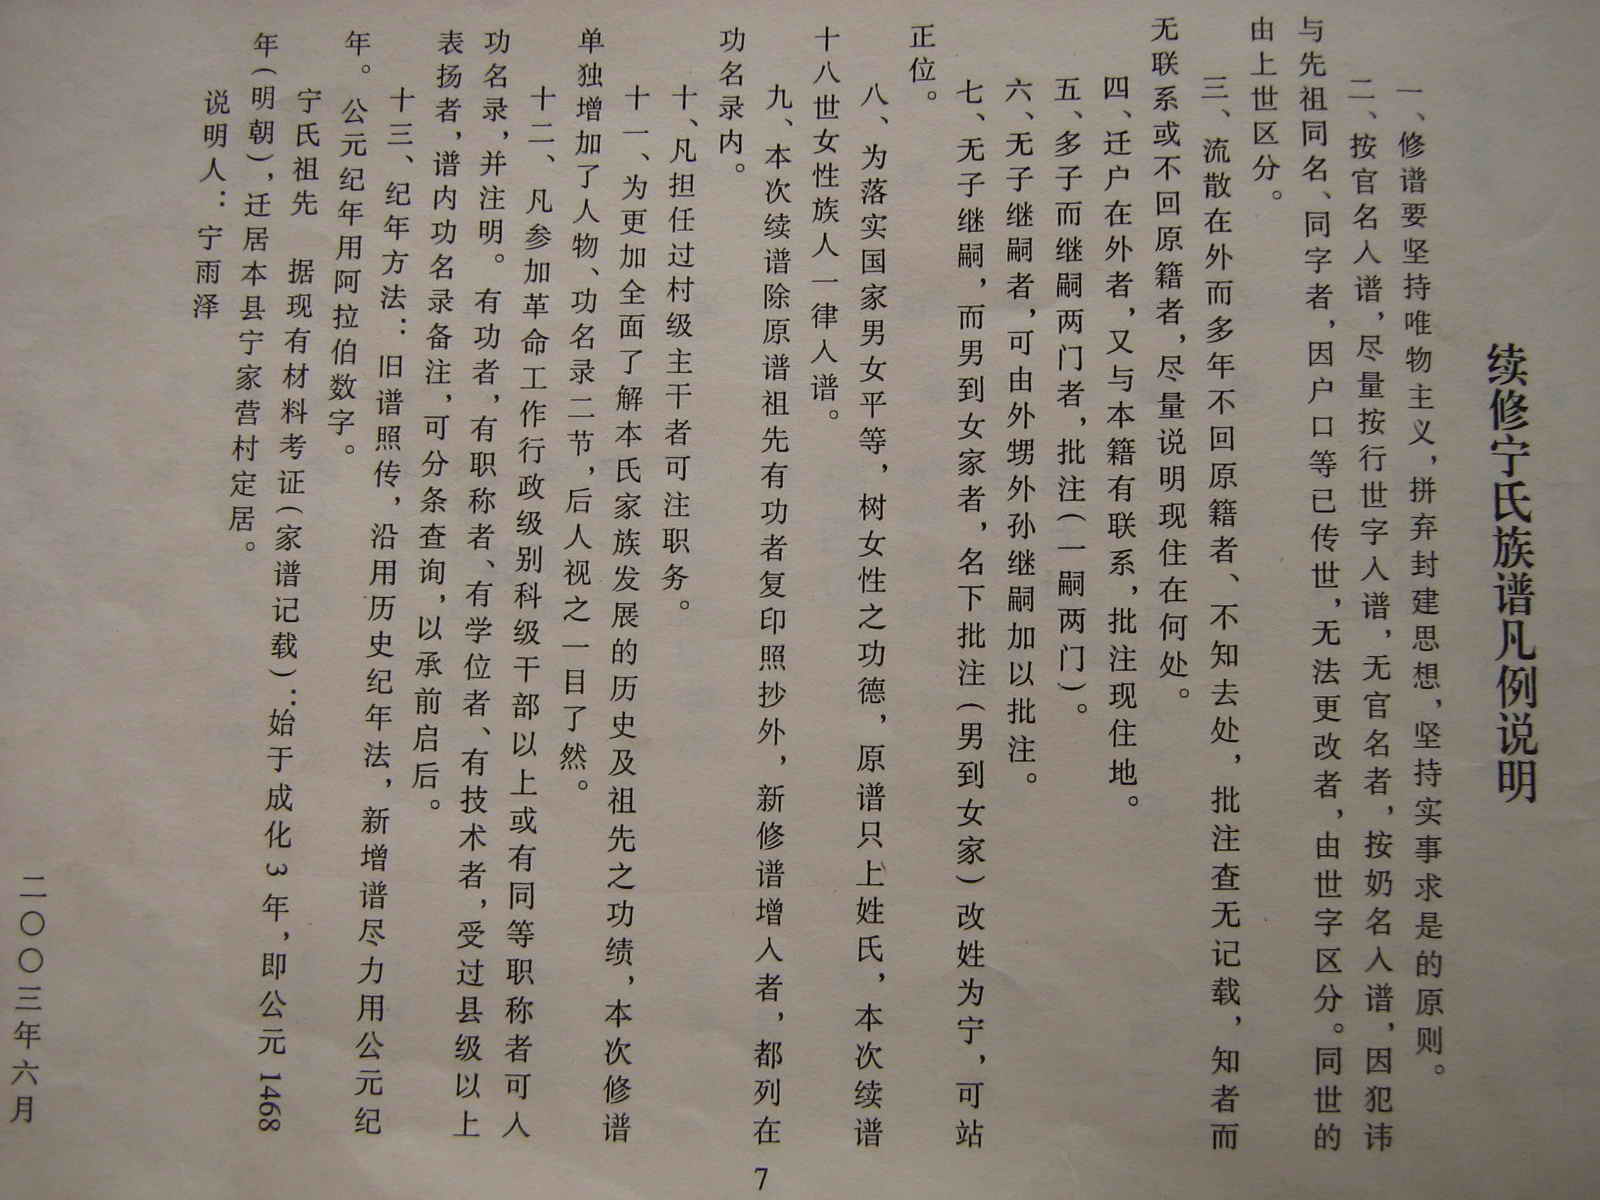 续修宁氏族谱凡例说明
一、修谱要坚持唯物主义，拼弃封建思想，坚持实事求是的原则。
二、按官名入谱，尽量按行世字入谱，无官名者，按奶名入谱，因犯讳
与先祖同名、同字者，因户口等已传世，无法更改者，由世字区分。同世的
由上世区分。
三、流散在外而多年不回原籍者、不知去处，批注查无记载，知者而
无联系或不回原籍者，尽量说明现住在何处。
四、迁户在外者，又与本籍有联系，批注现住地。
五、多子而继嗣两门者，批注（一嗣两门）。
六、无子继嗣者，可由外甥外孙继嗣加以批注。
七、无子继嗣，而男到女家者，名下批注（男到女家）改姓为宁，可站
正位。
八、为落实国家男女平等，树女性之功德，原谱只上姓氏，本次续谱
十八世女性族人一律入谱。
九、本次续谱除原谱祖先有功者复印照抄外，新修谱增入者，都列在
功名录内。
十、凡担任过村级主干者可注职务。
十一、为更加全面了解本氏家族发展的历史及祖先之功绩，本次修谱
单独增加了人物、功名录二节，后人视之一目了然。
十二、凡参加革命工作行政级别科级干部以上或有同等职称者可入
功名录，并注明。有功者，有职称者、有学位者、有技术者，受过县级以上
表扬者，谱内功名录备注，可分条查询，以承前启后。
十三、纪年方法：旧谱照传，沿用历史纪年法，新增谱尽力用公元纪
年。公元纪年用阿拉伯数字。
宁氏祖先 据现有材料考证（家谱记载）：始于成化3年，即公元1468
年（明朝），迁居本县宁家营村定居。
说明人：宁雨泽
二〇〇三年六月
7